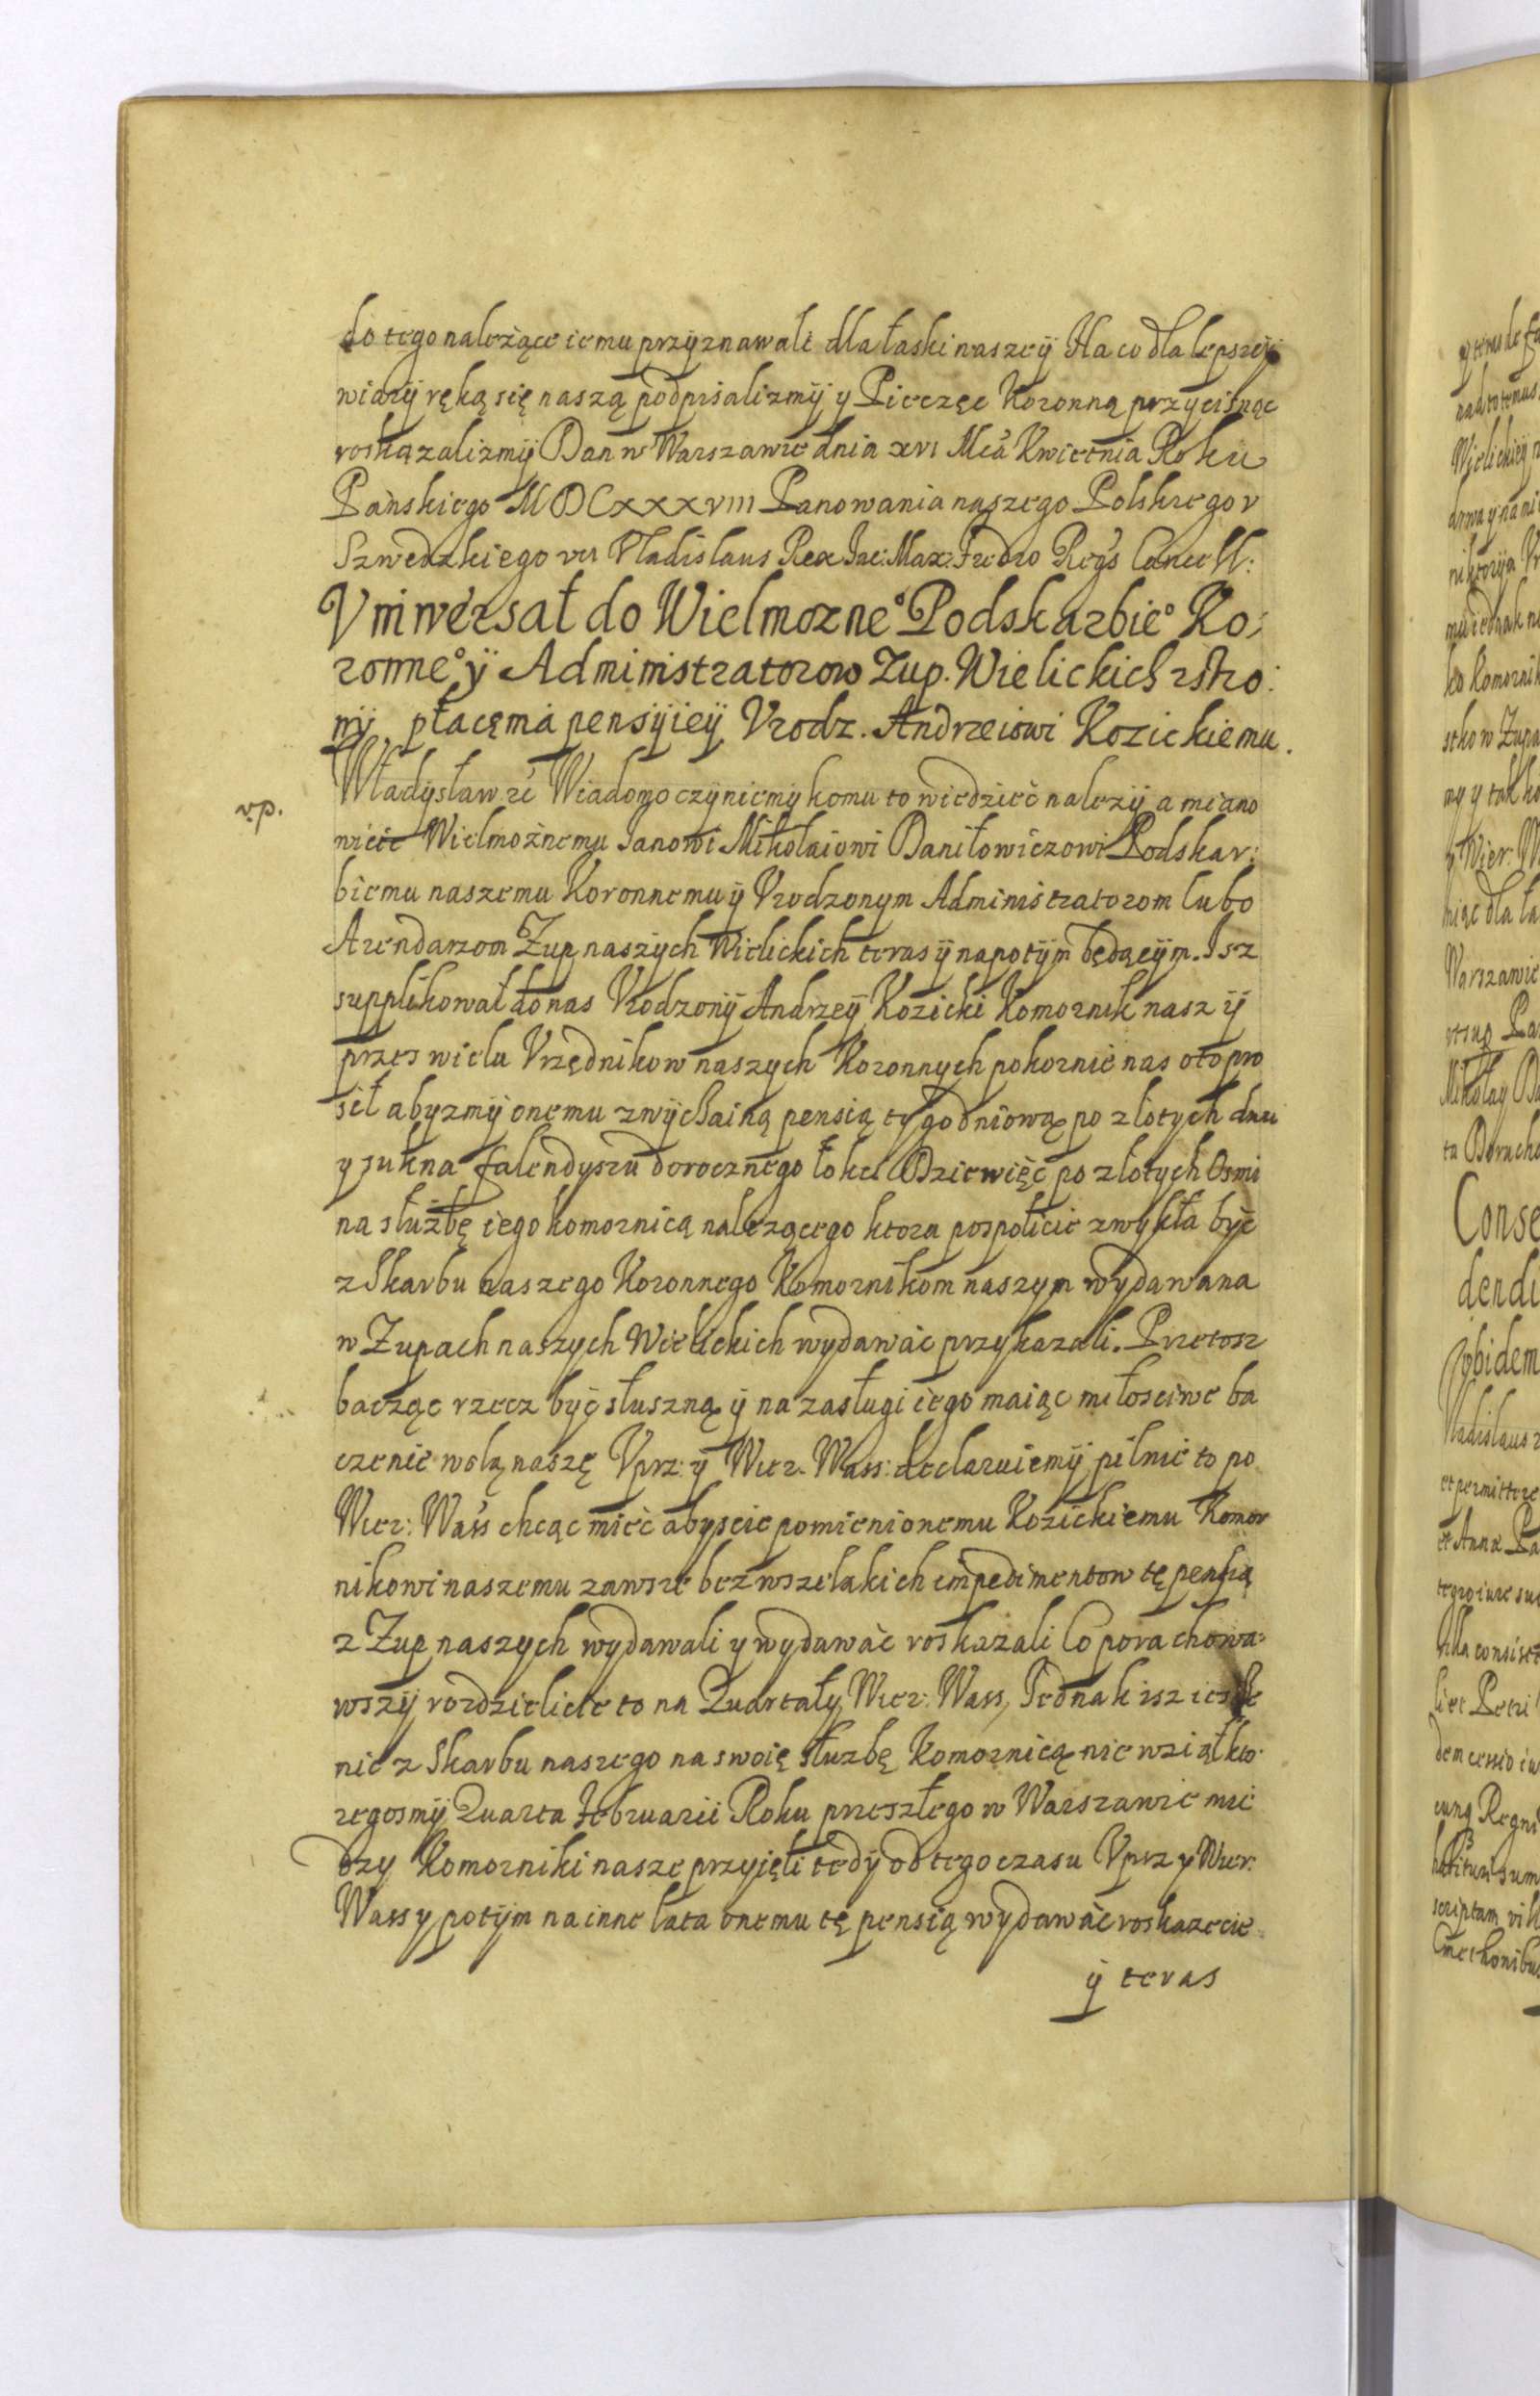 do tego należące iemu przyznawali dla łaski naszeÿ Na co dla lepszeÿ
wiarÿ ręką się naszą podpisalizmÿ y Pieczęc Koronną przycisnąc
roskazalizmÿ Dan w Warszawie dnia xvi Mca Kwietnia Roku
Pańskiego MDCxxxviii Panowania naszego Polskiego v
Szwedzkiego vii Vladislaus Rex Jac: Max: Fredro Regs Cancell:
Vniwersał do Wielmozne° Podskarbie° Ko:
ronne° ÿ Administratorow Zup. Wielickich ztro:
nÿ płacęma pensÿieÿ Vrodz. Andrzeiowi Kozickiemu.
v.p.
Władÿsław zć Wiadomo czÿniemÿ komu to wiedzieć nalezÿ a miano
wicie Wielmożnemu Janowi Mikołaiowi Daniłowiczowi Podskar:
biemu naszemu Koronnemu ÿ Vrodzonym Administratorom lubo
Arendarzom Zup naszÿch Wielickich teras ÿ napotÿm będącÿm. Isz
supplikował do nas Vrodzonÿ Andrzeÿ Kozicki Komornik nasz ÿ
przes wielu Vrzędnikow naszych Koronnych pokornie nas oto pro
sił abyzmÿ onemu zwÿchainą pensią tygodniową po zlotych dwu
y sukna falendyszu dorocznego łokci Dziewięć po zlotych Osmi
na służbę iego komornicą należącego ktora pospolicie zwykła być
z Skarbu naszego Koronnego Komornikom naszym wydawana
w Zupach naszych Wielickich wydawać przykazali. Przetosz
bacząc rzecz być słuszną ÿ na zasługi iego maiąc miłosciwe ba
czenie wolą naszę Vprz: ÿ Wier. Wass: declaruiemÿ pilnie to po
Wier: Wass chcąc mieć abyscie pomienionemu Kozickiemu Komor
nikowi naszemu zawsze bez wszelakich impedimentow tę pensią
z Zup naszych wydawali y wydawać roskazali Co porachowa:
wszÿ rozdzielicie to na Quartały Wier: Wass, Jednak isz ieszcze
nic z Skarbu naszego na swoię służbę Komornicą nie wziął kto:
regosmÿ Quarta Februarii Roku przeszłego w Warszawie mie
dzy Komorniki nasze przyięli tedÿ od tego czasu Vprz y Wier.
Wass y potÿm na inne lata onemu tę pensią wydawać roskazecie
ÿ teras